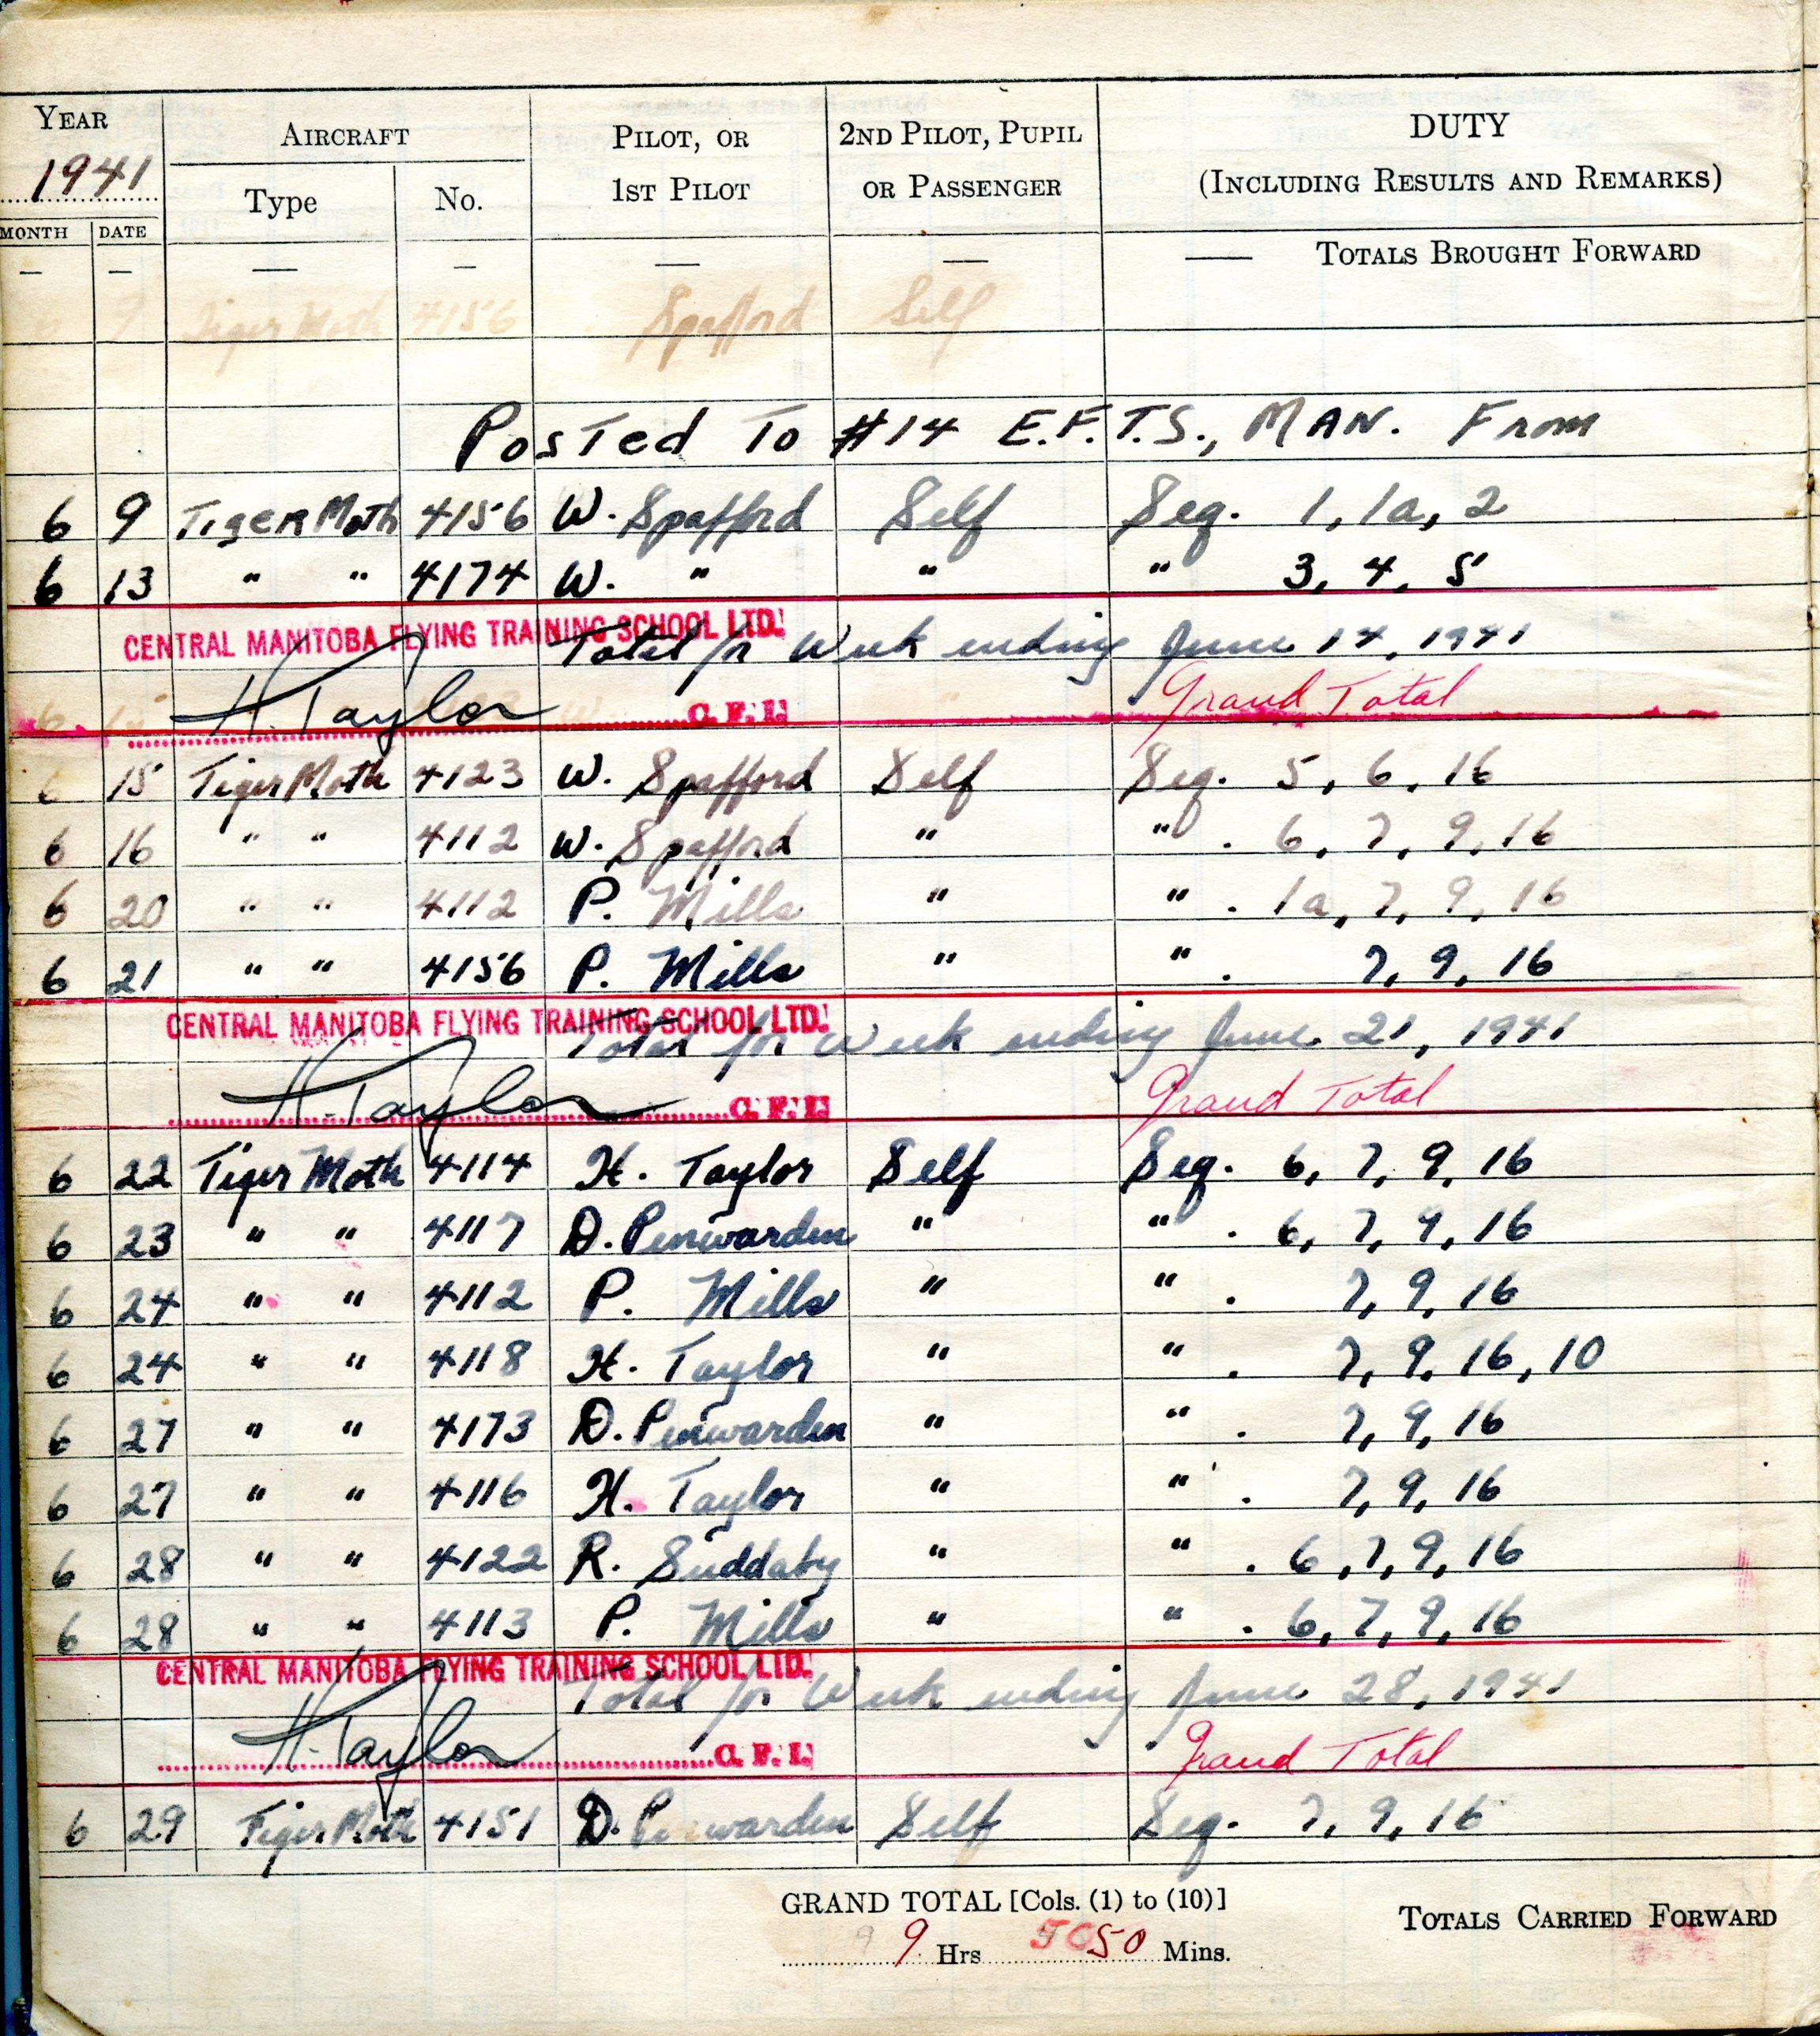 YEAR AIRCRAFT PILOT, OR 2ND PILOT, PUPIL DUTY
1941 Type No. 1ST PILOT OR PASSENGER (INCLUDING RESULTS AND REMARKS)
MONTH DATE
— — — — — — — TOTALS BROUGHT FORWARD
7 Tiger Moth 4156 Spafford Self
Posted To #14 E.F.T.S., MAN. From
6 9 Tiger Moth 4156 W. Spafford Self Seq. 1, 1a, 2
6 13 " " 4174 W. " " " 3, 4, 5
CENTRAL MANITOBA FLYING TRAINING SCHOOL LTD. Total for Week ending June 14, 1941
H. Taylor C.F.I. Grand Total
6 15 Tiger Moth 4123 W. Spafford Self Seq. 5, 6, 16
6 16 " " 4112 W. Spafford " " . 6, 7, 9, 16
6 20 " " 4112 P. Mills " " . 1a, 7, 9, 16
6 21 " " 4156 P. Mills " " . 7, 9, 16
CENTRAL MANITOBA FLYING TRAINING SCHOOL LTD. Total for Week ending June 21, 1941
H. Taylor C.F.I. Grand Total
6 22 Tiger Moth 4114 H. Taylor Self Seq. 6, 7, 9, 16
6 23 " " 4117 D. Penwarden " " . 6, 7, 9, 16
6 24 " " 4112 P. Mills " " . 7, 9, 16
6 24 " " 4118 H. Taylor " " . 7, 9, 16, 10
6 27 " " 4173 D. Penwarden " " . 7, 9, 16
6 27 " " 4116 H. Taylor " " . 7, 9, 16
6 28 " " 4122 R. Suddaby " " . 6, 7, 9, 16
6 28 " " 4113 P. Mills " " . 6, 7, 9, 16
CENTRAL MANITOBA FLYING TRAINING SCHOOL LTD. Total for Week ending June 28, 1941
H. Taylor C.F.I. Grand Total
6 29 Tiger Moth 4151 D. Penwarden Self Seq. 7, 9, 16
GRAND TOTAL [Cols. (1) to (10)] TOTALS CARRIED FORWARD
9 Hrs 50 Mins.